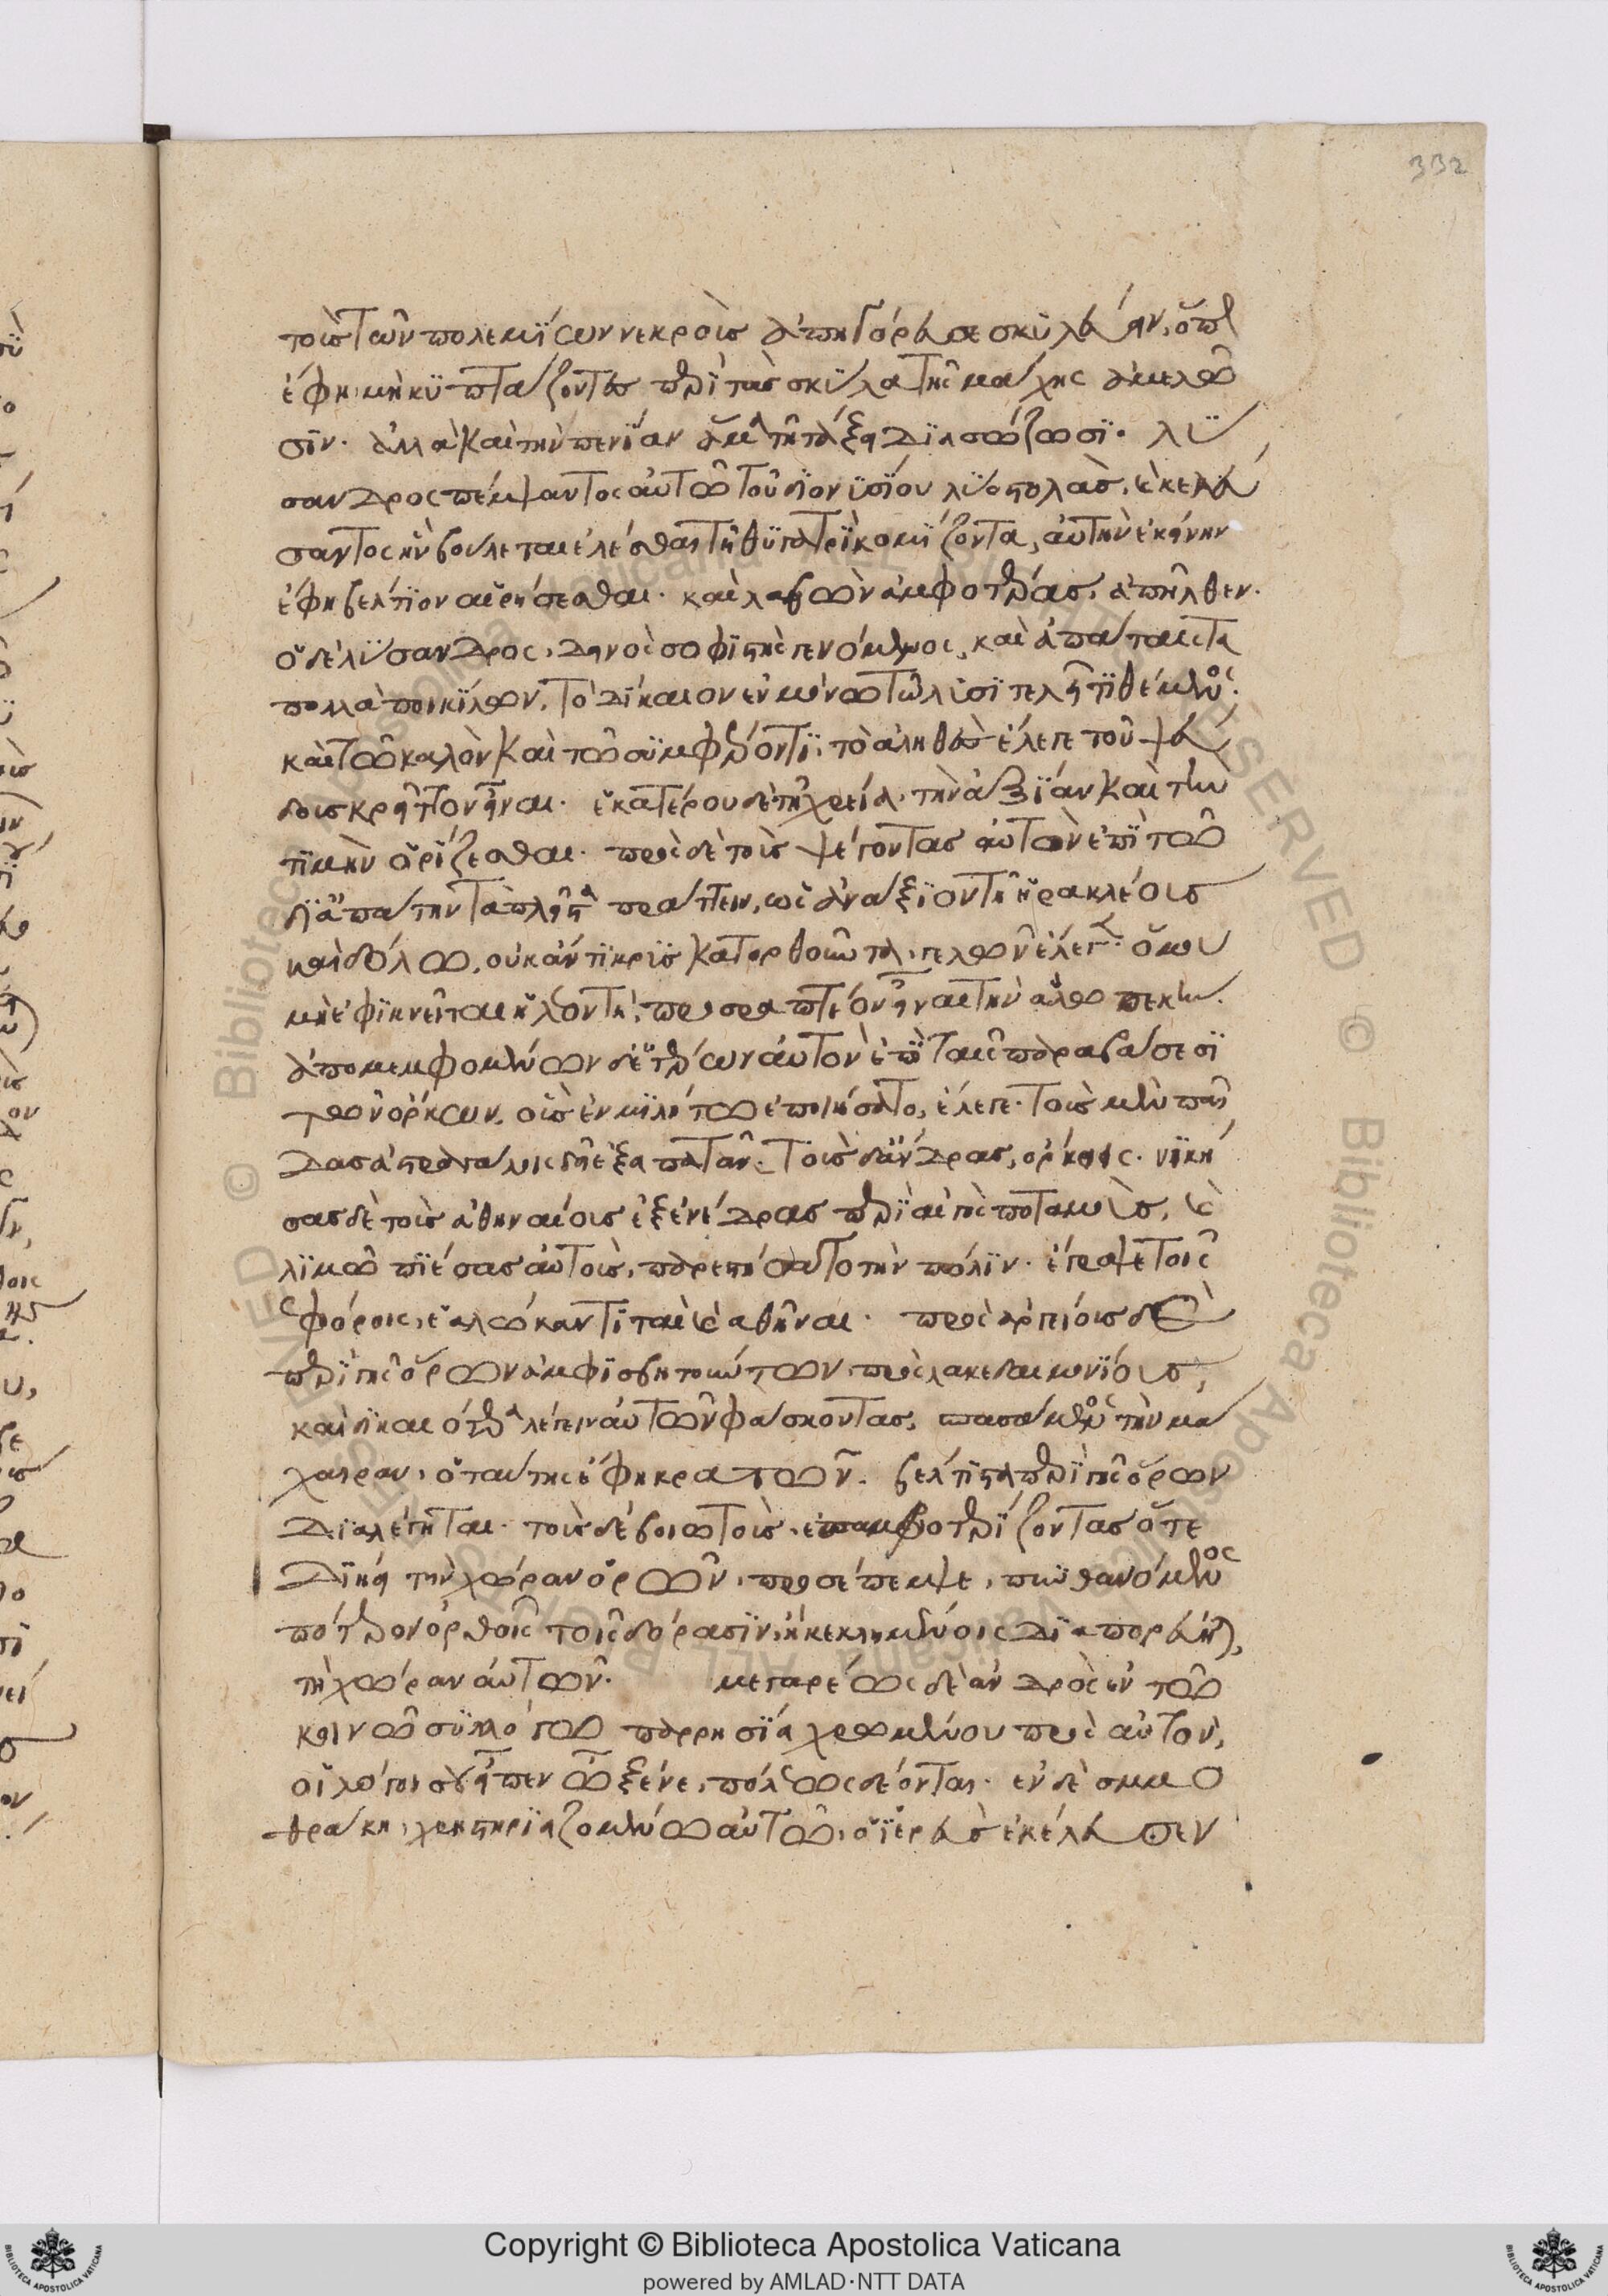 332
τοὺς τῶν πολεμίων νεκροὺς ἀπηγόρευσε σκυλεύειν, ὅπ
ἔφη μὴ κυπτάζοντες περὶ τὰ σκῦλα τῆς μάχης ἀμελῶ
σιν. ἀλλὰ καὶ τὴν πενίαν ἅμα τῇ τάξει διασώζωσι. λύ
σανδρος πέμψαντος αὐτῶ τοῦ διονυσίου δύο στολὰς, κελεύ
σαντος ἣν βούλεται ἑλέσθαι τῇ θυγατρὶ κομίζοντα, αὐτὴν ἐκείνην
ἔφη βέλτιον αἱρήσεσθαι. καὶ λαβὼν ἀμφοτέρας, ἀπῆλθεν.
ὁ δὲ λύσανδρος, δεινὸς σοφιστὴς γενόμενος, καὶ ἀπάταις τὰ
πολλὰ ποικίλλων, τὸ δίκαιον ἐν μόνω τῶ λυσιτελεῖ τιθέμενος.
καὶ τὸ καλὸν καὶ τῶ συμφέροντι, τὸ ἀληθὲς ἔλεγε τοῦ ψεύ
δους κρεῖττον εἶναι. ἑκατέρου δὲ τῇ χρεία, τὴν ἀξίαν καὶ τὴν
τιμὴν ὁρίζεσθαι. πρὸς δὲ τοὺς ψέγοντας αὐτὸν ἐπὶ τῶ
δι᾽ ἀπάτην τὰ πλεῖστα πράττειν, ὡς ἀνάξιον τῆ ἡρακλέους
καὶ δόλω, οὐκ ἄντικρυς κατορθοῦντα, γελῶν ἔλεγεν ὅπου
μὴ ἐφικνεῖται ἡ λεοντῆ, προσραπτέον εἶναι τὴν ἀλωπεκὴν.
ἀπομεμφομένων δὲ ἑτέρων αὐτὸν ἐπὶ ταῖς παραβάσεσι
τῶν ὅρκων, οὓς ἐν μιλήτω ἐποιήσατο, ἔλεγε. τοὺς μὲν παῖ
δας ἀστραγάλοις δεῖ ἐξαπατᾶν. τοὺς δ᾽ ἄνδρας, ὅρκοις. νική
σας δὲ τοὺς ἀθηναίους ἐξ ἐνέδρας περὶ αἰγὸς ποταμοὺς, καὶ
λιμῶ πιέσας αὐτοὺς, παρεστήσατο τὴν πόλιν. ἔγραψε τοῖς
ἐφόροις, ἑαλώκαντι ταὶ ἀθῆναι. πρὸς ἀργείους δὲ
περὶ γῆς ὅρων ἀμφισβητούντων πρὸς λακεδαιμονίους,
καὶ δικαιότερα λέγειν αὐτῶν φάσκοντας, σπασάμενος τὴν μά
χαιραν, ὁ ταύτης ἔφη κρατῶν. βέλτιστα περὶ γῆς ὅρων
διαλέγεται. τοὺς δὲ βοιωτοὺς, ἐπαμφοτερίζοντας ὅτε
διήει τὴν χώραν ὁρῶν, προσέπεμψε, πυνθανόμενος
πότερον ὀρθοῖς τοῖς δόρασιν, ἢ κεκλιμένοις διαπορεύηται,
τὴν χώραν αὐτῶν. μεγαρέως δὲ ἀνδρὸς ἐν τῶ
κοινῶ συλλόγω παρρησία χρωμένου πρὸς αὐτόν,
οἱ λόγοι σου εἶπεν ὦ ξένε, πόλεως δέονται. ἐν δὲ σαμο
θράκη, χρηστηριαζομένω αὐτῶ, ὁ ἱερεὺς ἐκέλευσεν
Copyright © Biblioteca Apostolica Vaticana
powered by AMLAD·NTT DATA